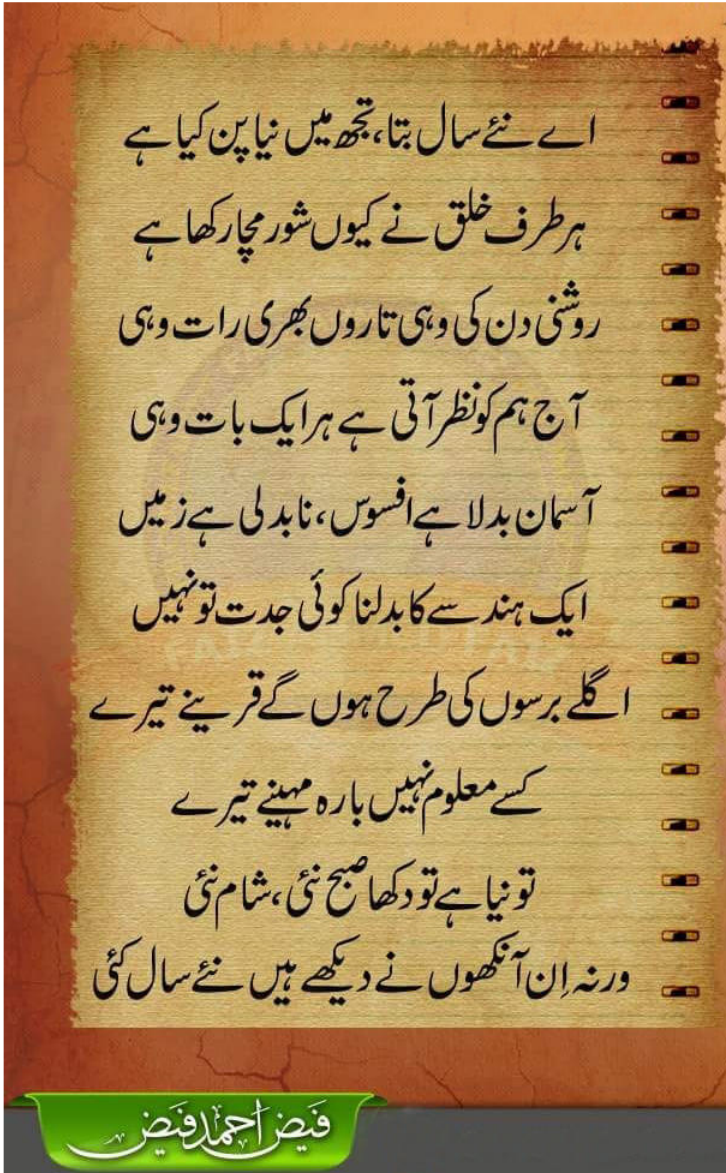 اے نئے سال بتا، تجھ میں نیا پن کیا ہے
ہر طرف خلق نے کیوں شور مچا رکھا ہے
روشنی دن کی وہی تاروں بھری رات وہی
آج ہم کو نظر آتی ہے ہر ایک بات وہی
آسمان بدلا ہے افسوس، نا بدلی ہے زمیں
ایک ہندسے کا بدلنا کوئی جدت تو نہیں
اگلے برسوں کی طرح ہوں گے قرینے تیرے
کسے معلوم نہیں بارہ مہینے تیرے
تو نیا ہے تو دکھا صبح نئی، شام نئی
ورنہ اِن آنکھوں نے دیکھے ہیں نئے سال کئی
فیض احمد فیض